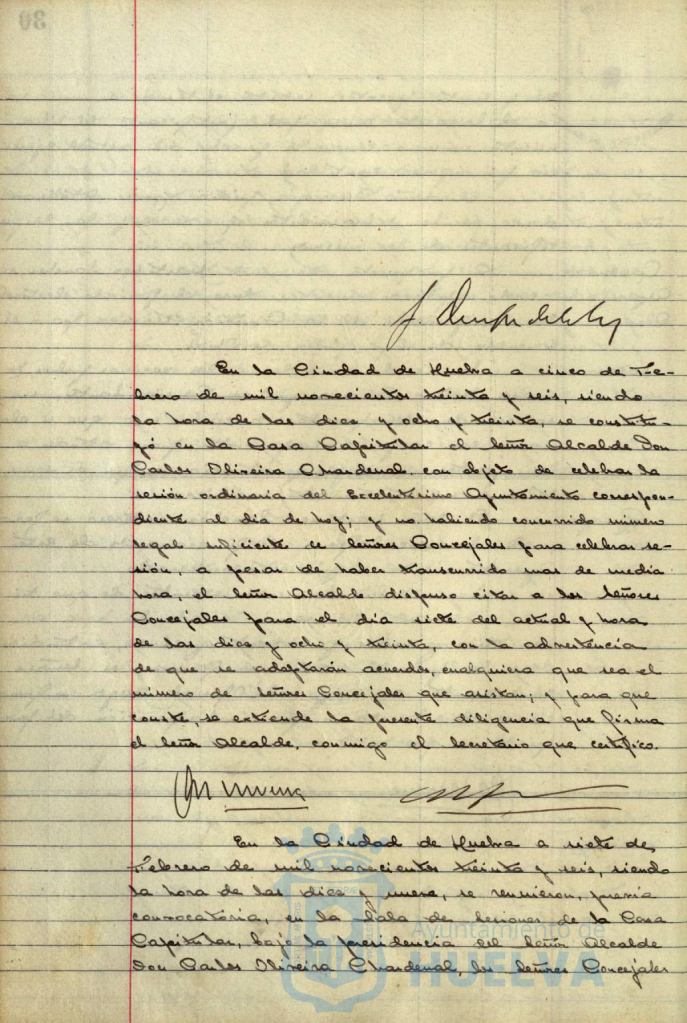 30
En la Ciudad de Huelva a cinco de Fe-
brero de mil novecientos treinta y seis, siendo
la hora de las diez y ocho y treinta, se constitu-
yó en la Casa Capitular el Señor Alcalde Don
Carlos Oliveira Chardenal, con objeto de celebrar la
sesión ordinaria del Excelentísimo Ayuntamiento correspon-
diente al día de hoy; y no habiendo concurrido número
legal suficiente de Señores Concejales para celebrar se-
sión, a pesar de haber transcurrido mas de media
hora, el Señor Alcalde dispuso citar a los Señores
Concejales para el día siete del actual y hora
de las diez y ocho y treinta, con la advertencia
de que se adoptarán acuerdos, cualquiera que sea el
número de Señores Concejales que asistan; y para que
conste, se extiende la presente diligencia que firma
el Señor Alcalde, conmigo el Secretario que certifico.
En la Ciudad de Huelva a siete de
Febrero de mil novecientos treinta y seis, siendo
la hora de las diez y nueve, se reunieron, previa
convocatoria, en la Sala de Sesiones de la Casa
Capitular, bajo la presidencia del Señor Alcalde
Don Carlos Oliveira Chardenal, los Señores Concejales
Ayuntamiento de
HUELVA